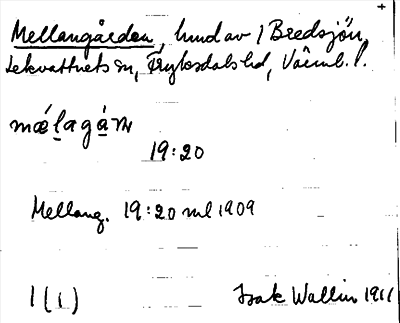 +
Mellangården, hmd av 1 Bredsjön,
Lekvattnets sn, Fryksdals hd, Värml. l.
19:20
Mellang. 19:20 ml 1909
1 (1)
Isak Wallin 1911